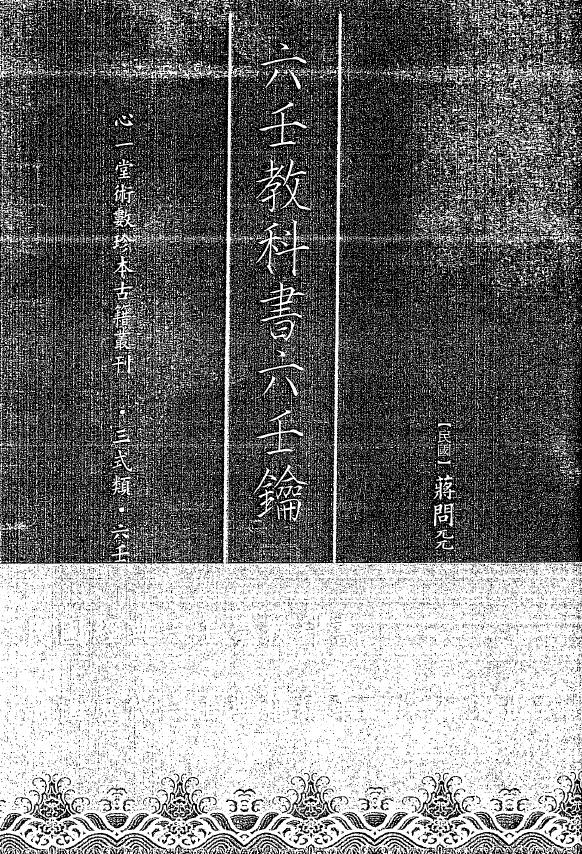 【民國】蔣問天
六壬教科書六壬鑰
心一堂術數珍本古籍叢刊・三式類・六壬